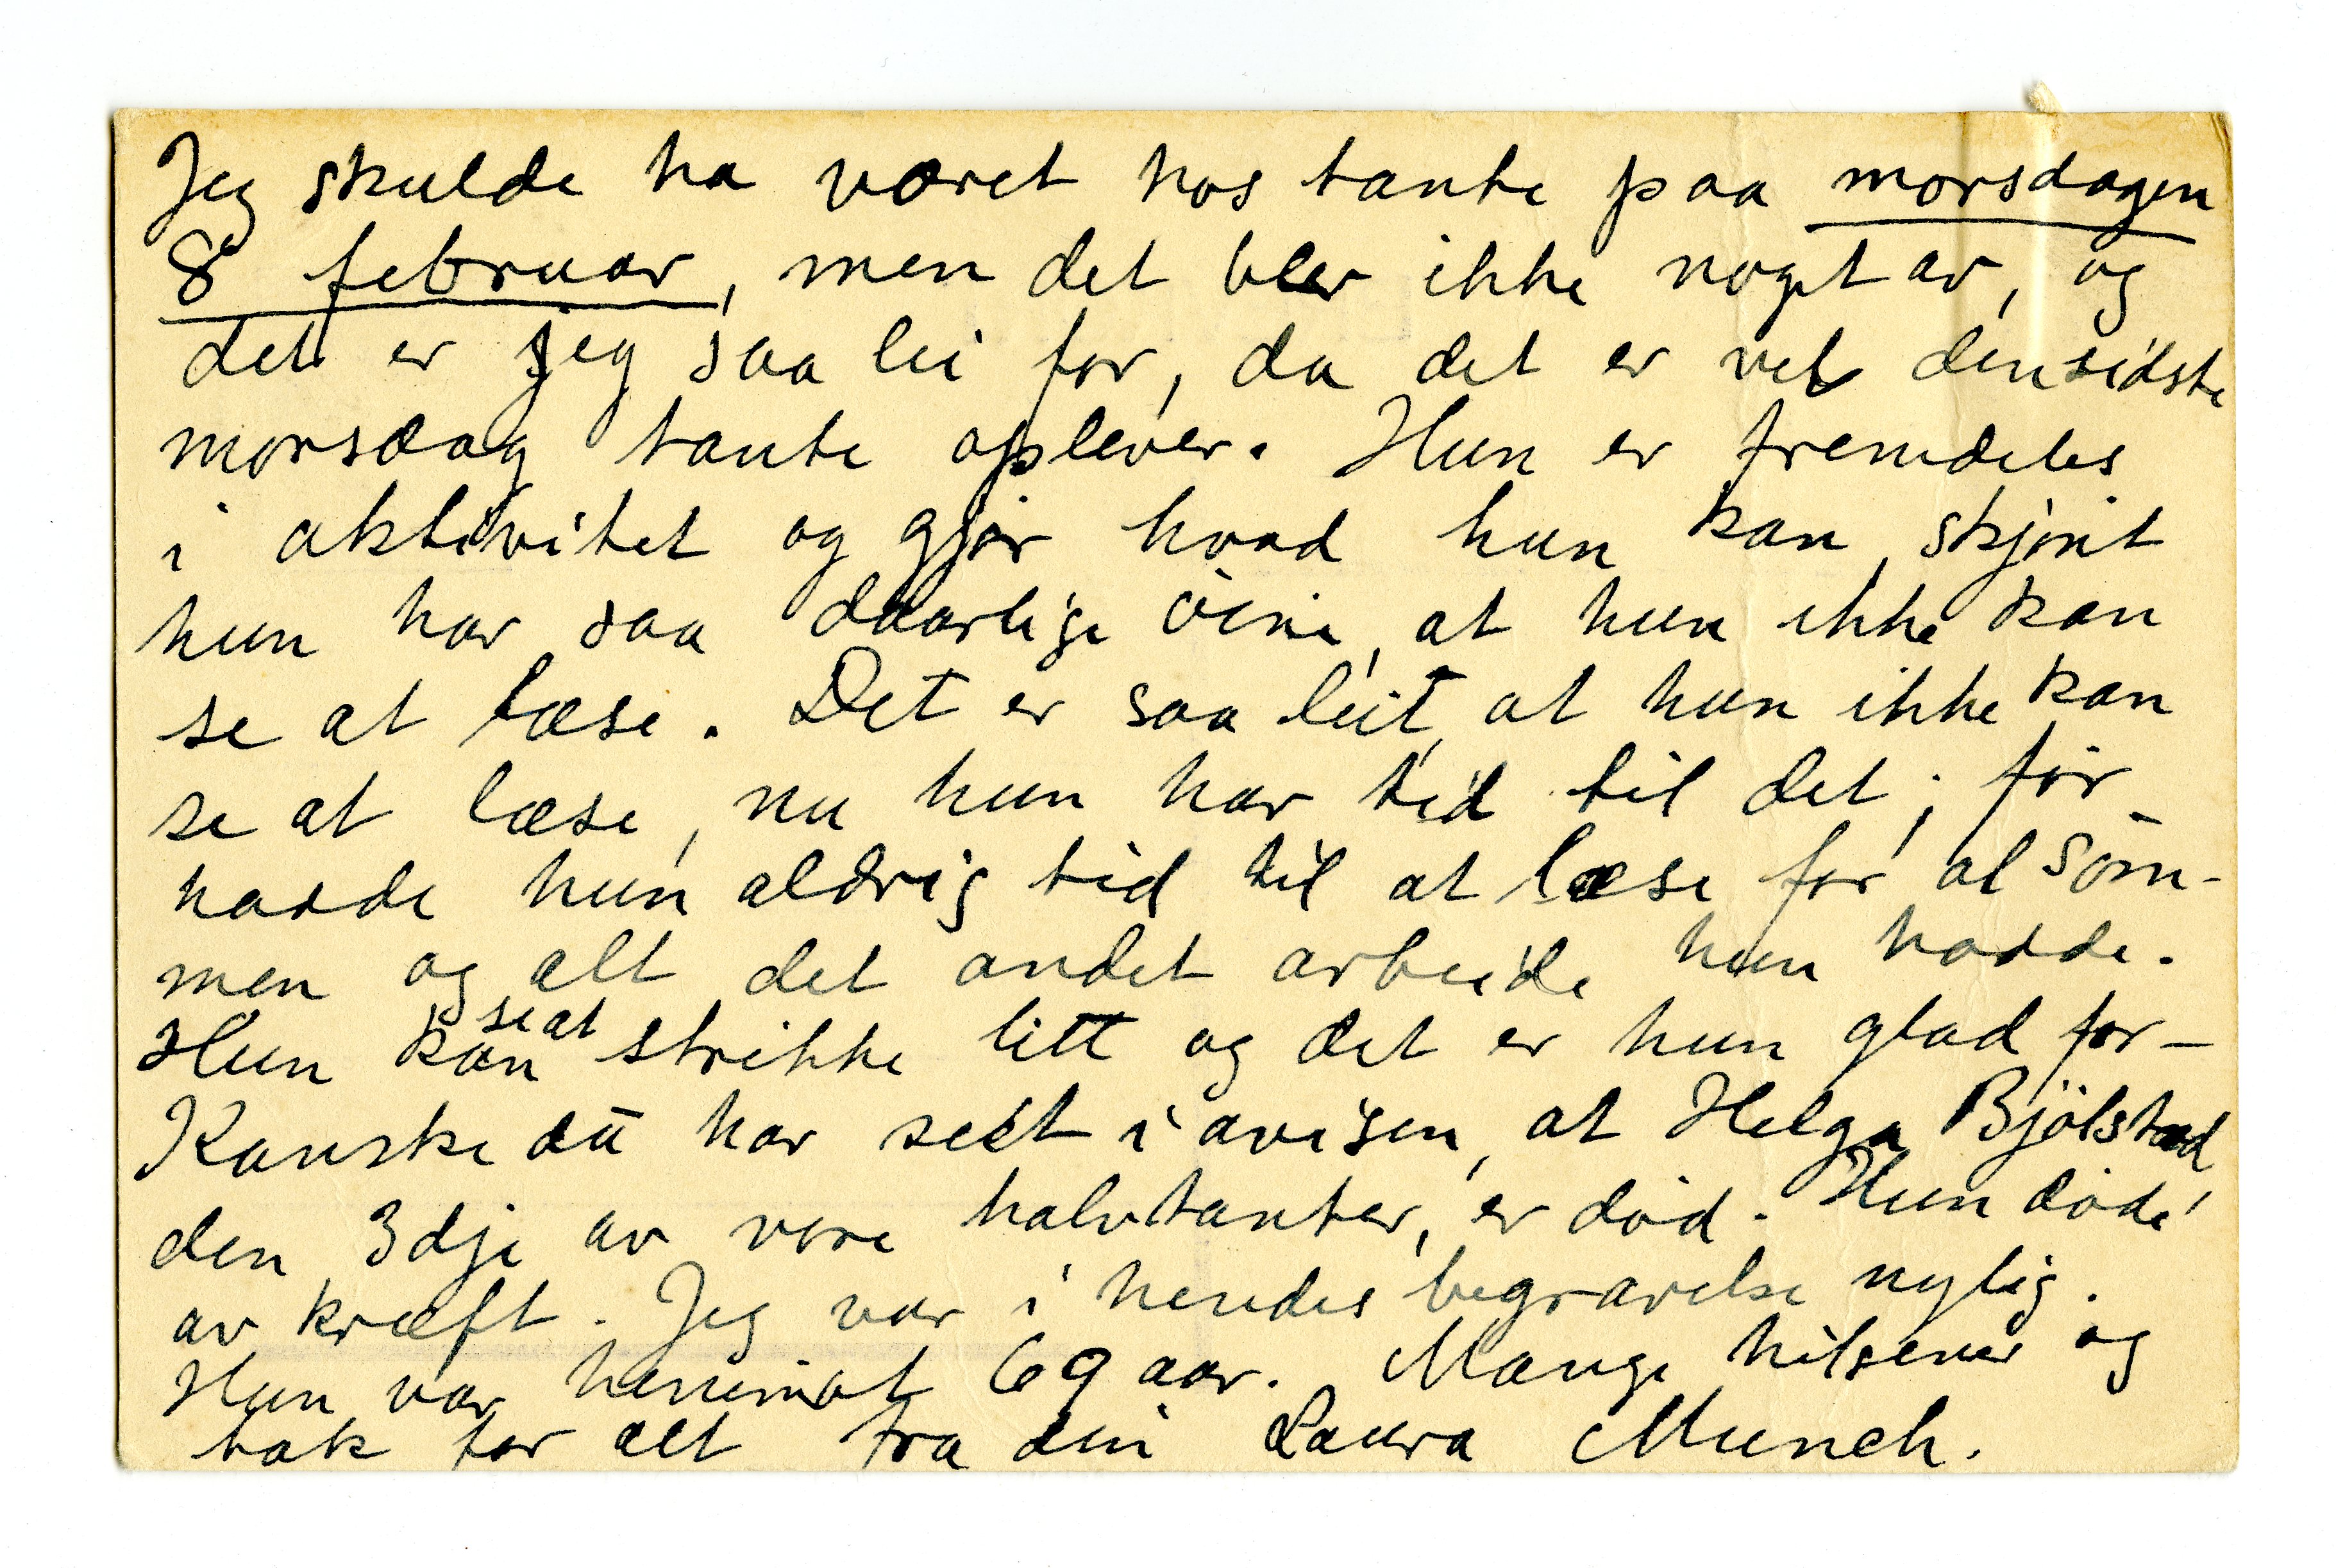 Jeg skulde ha været hos tante paa morsdagen
8 februar, men det blev ikke noget av, og
det er jeg saa lei for, da det er vel den sidste
morsdag tante oplever. Hun er fremdeles
i aktivitet og gjör hvad hun kan, skjönt
hun har saa daarlige öine, at hun ikke kan
se at læse. Det er saa leit, at hun ikke kan
se at læse, nu hun har tid til det; för
hadde hun aldrig tid til at læse for al söm-
men og alt det andet arbeide hun hadde.
Hun kan se at strikke litt og det er hun glad for –
Kanske du har seet i avisen, at Helga Bjölstad,
den 3dje av vore halvtanter, er död. Hun döde
av kræft. Jeg var i hendes begravelse nylig.
Hun var henimot 69 aar. Mange hilsener og
tak for alt fra din Laura Munch.